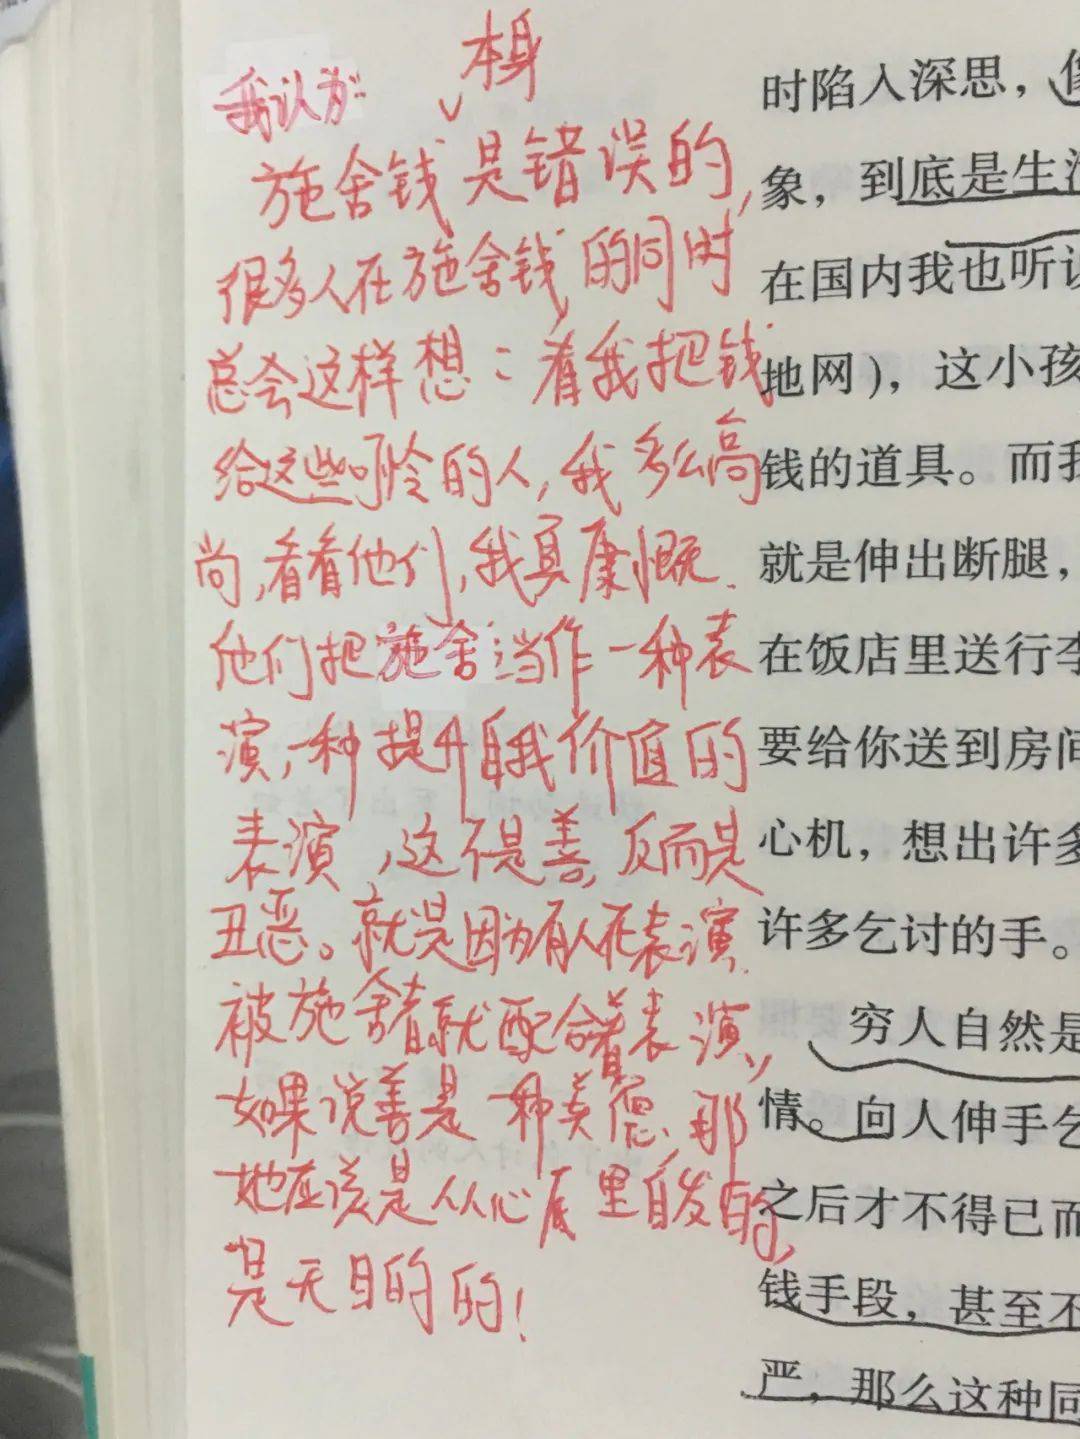 我认为:
本身
施舍钱是错误的,
很多人在施舍钱的同时
总会这样想:看我把钱
给这些可怜的人,我多么高
尚,看看他们,我真康慨.
他们把施舍当作一种表
演,一种提升自我价值的
表演,这不是善,反而是
丑恶。就是因为有人在表演
被施舍者就配合着表演,
如果说善是一种美德,那
她应该是从心底里自发的,
是无目的的!
时陷入深思,
象，到底是生活
在国内我也听说
地网），这小孩
钱的道具。而我
就是伸出断腿，
在饭店里送行李
要给你送到房间
心机，想出许多
许多乞讨的手。
穷人自然是
情。向人伸手乞
之后才不得已而
钱手段，甚至不
严，那么这种同